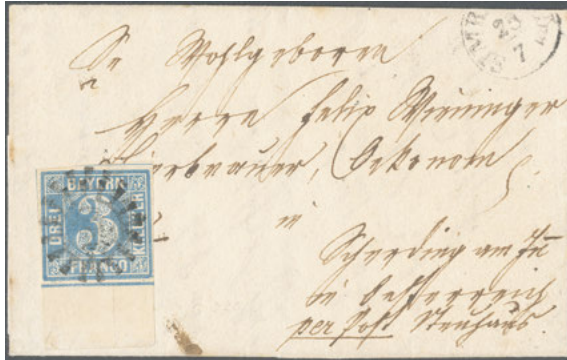 Sr Wohlgeboren
Herrn Felix Wieninger
Bierbrauer, Oekonom
in
Scherding am In
in Oesterreich
per Post Neuhaus
23
7
BAYERN
DREI
3
KREUZER
FRANCO